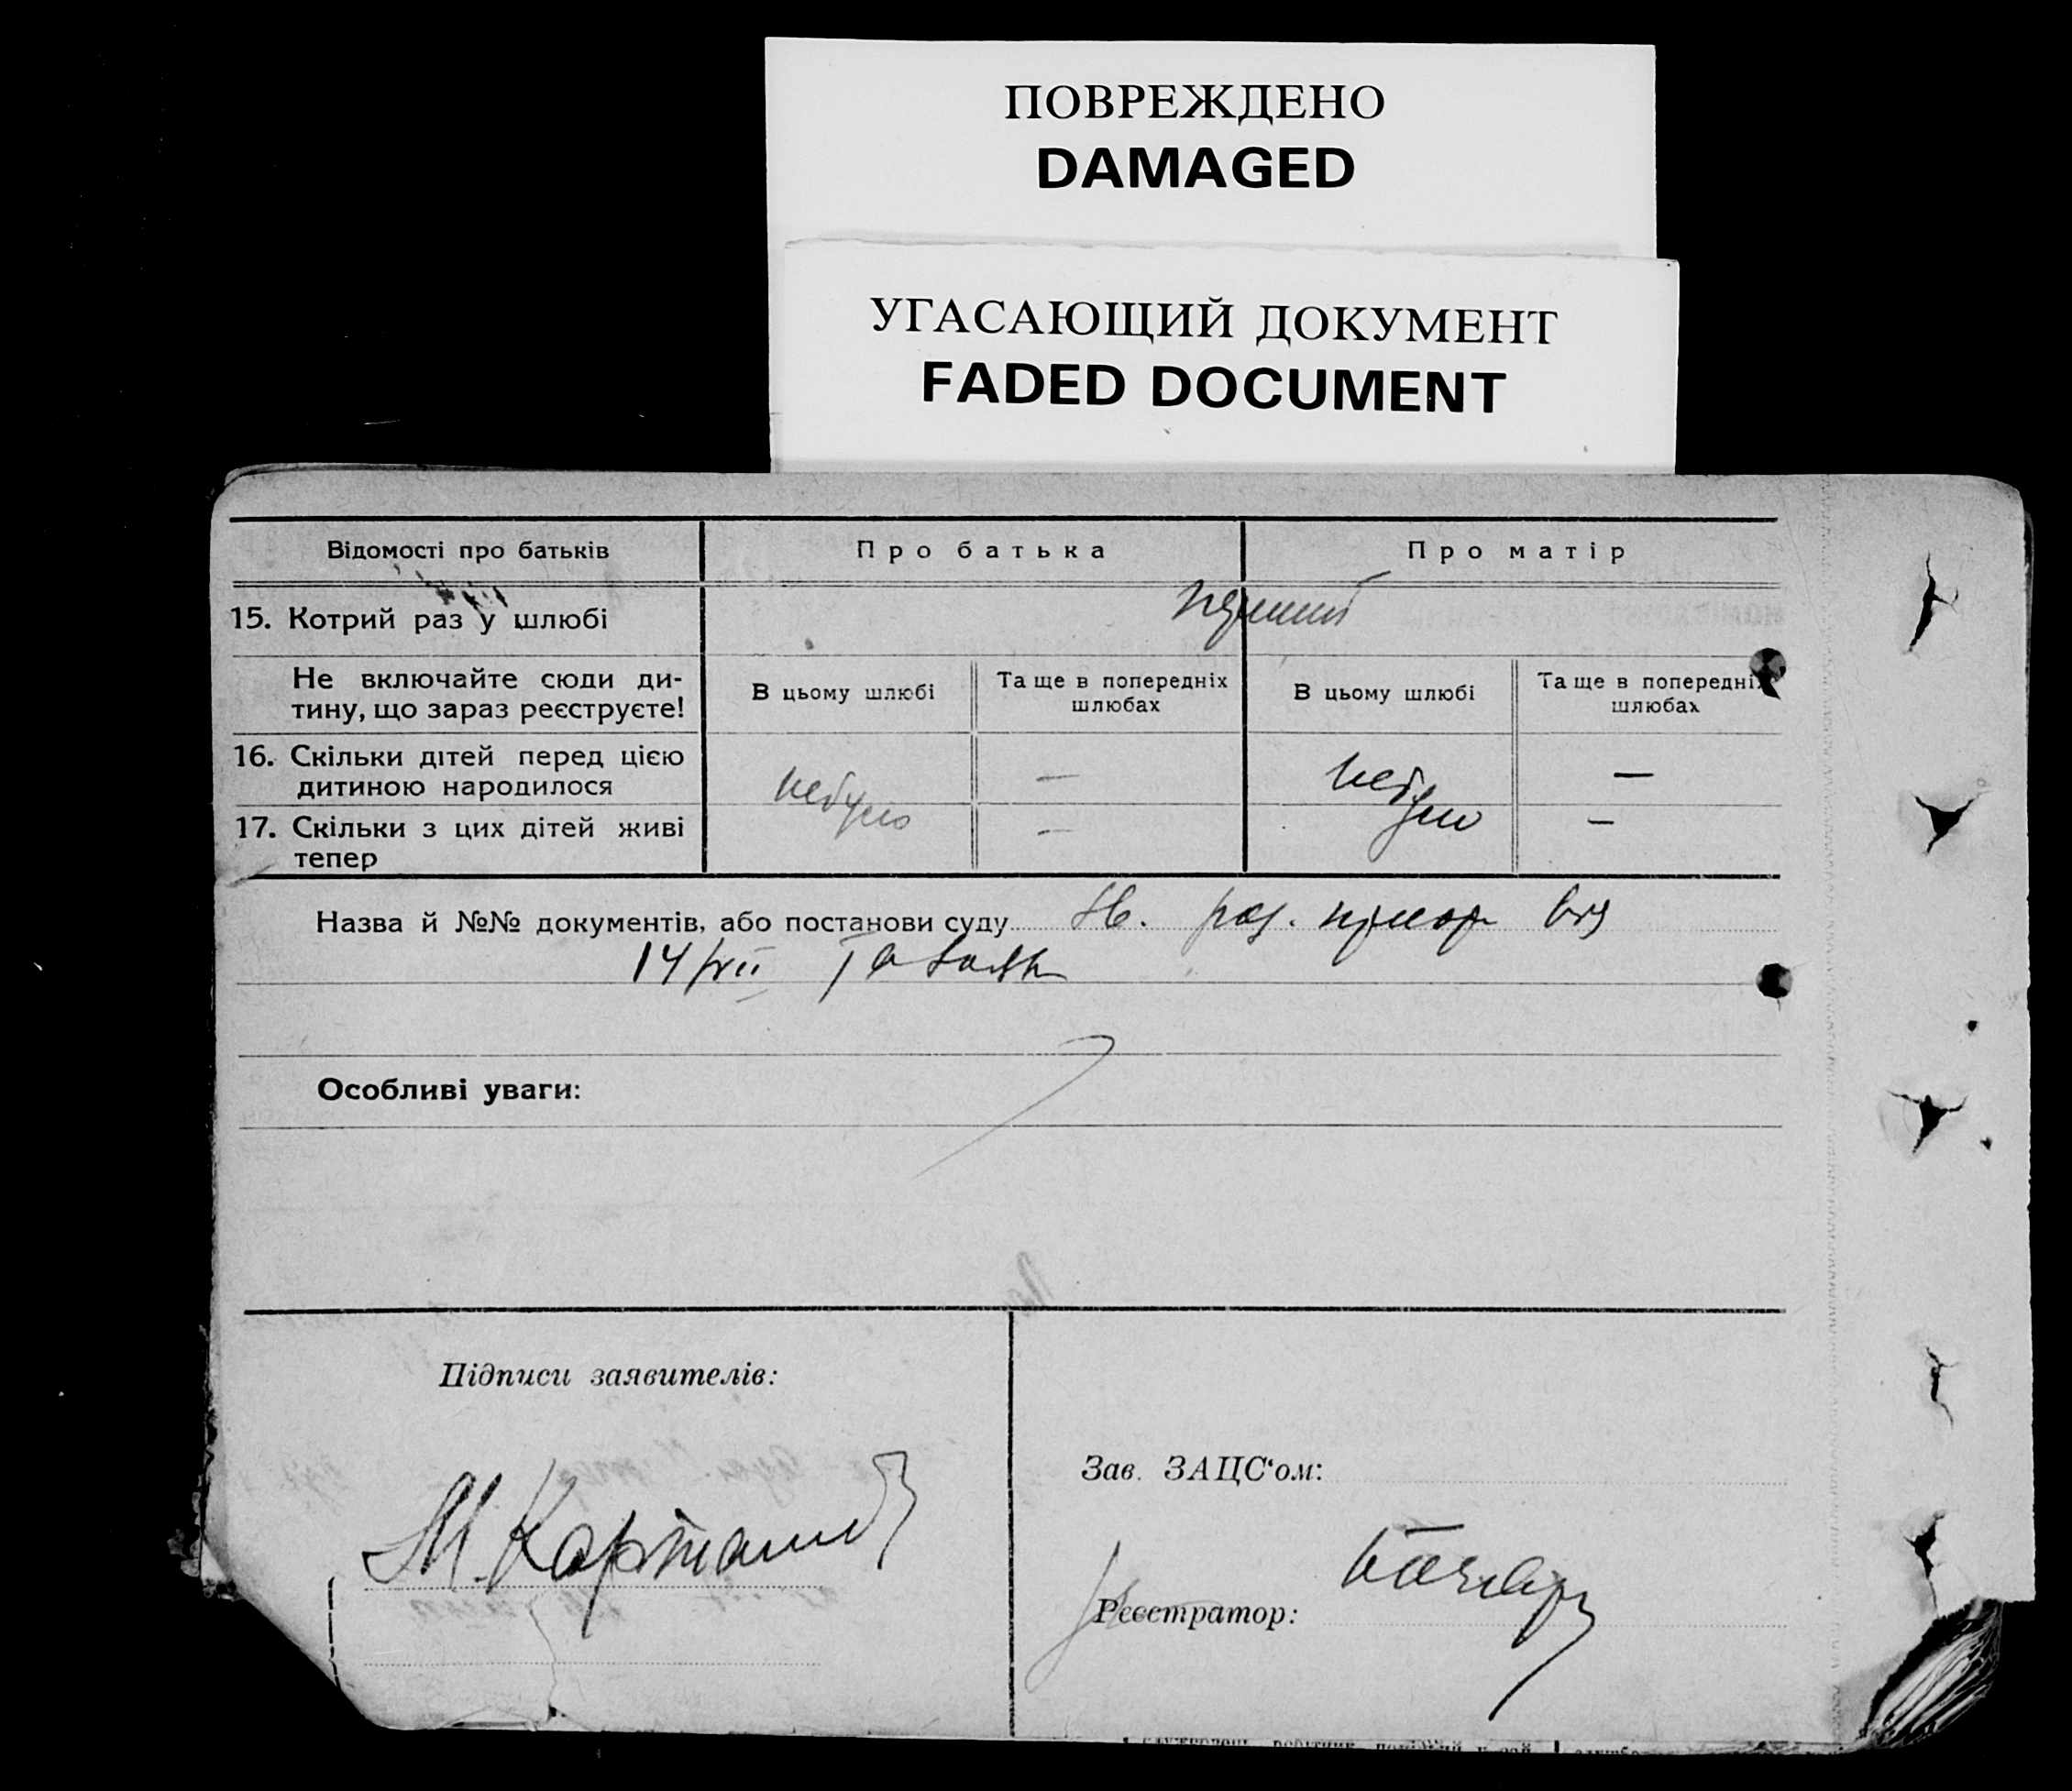 ПОВРЕЖДЕНО
DAMAGED
УГАСАЮЩИЙ ДОКУМЕНТ
FADED DOCUMENT
Відомості про батьків
Про батька
Про матір
15. Котрий раз у шлюбі
Не включайте сюди ди-
тину, що зараз реєструєте!
В цьому шлюбі
Та ще в попередніх
шлюбах
В цьому шлюбі
Та ще в попередніх
шлюбах
16. Скільки дітей перед цією
дитиною народилося
небуло
—
небуло
—
17. Скільки з цих дітей живі
тепер
—
—
Назва й №№ документів, або постанови суду
14/VII
Особливі уваги:
Підписи заявителів:
М.
Зав. ЗАЦС‘ом:
Реєстратор: